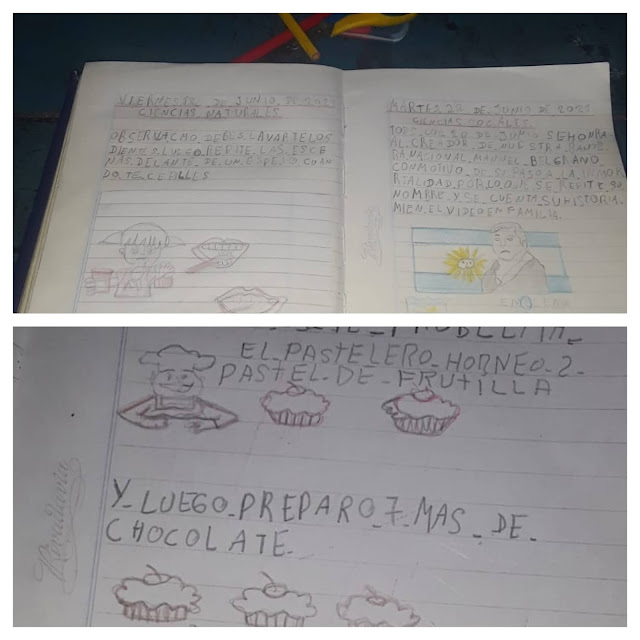 VIERNES 18 DE JUNIO DE 2021
CIENCIAS NATURALES
OBSERVA CMO DEBES LAVARTE LOS
DIENTES LUEGO REPITE LAS ESCE
NAS DELANTE DE UM ESPEJO CUAN
DO TE CEPILLES
MARTES 22 DE JUNIO DE 2021
CIENCIAS SOCIALES
DE JUNIO SE HONRA
AL CREADOR DE NUESTRA BANDE
RA NACIONAL MANUEL BELGRANO
CON MOTIVO DE SU PASO A LA INMO
RTALIDAD POR LO Q SE REPITE SU
NOMBRE Y SE CUENTA SU HISTORIA
MIEN EL VIDEO EN FAMILIA.
Rivadavia
PROBLEMA
EL PASTELERO HORNEO 2
PASTEL DE FRUTILLA
Y LUEGO PREPARO 7 MAS DE
CHOCOLATE
Rivadavia